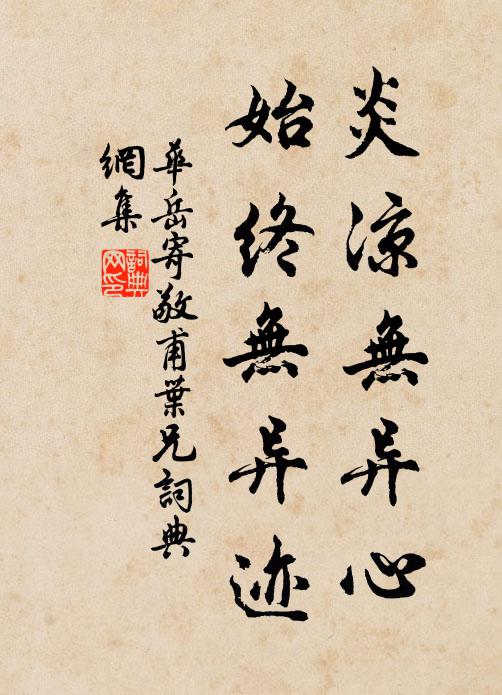 炎涼無异心
始終無异迹
華岳寄敬甫葉兄詞典
網集
詞典
网印